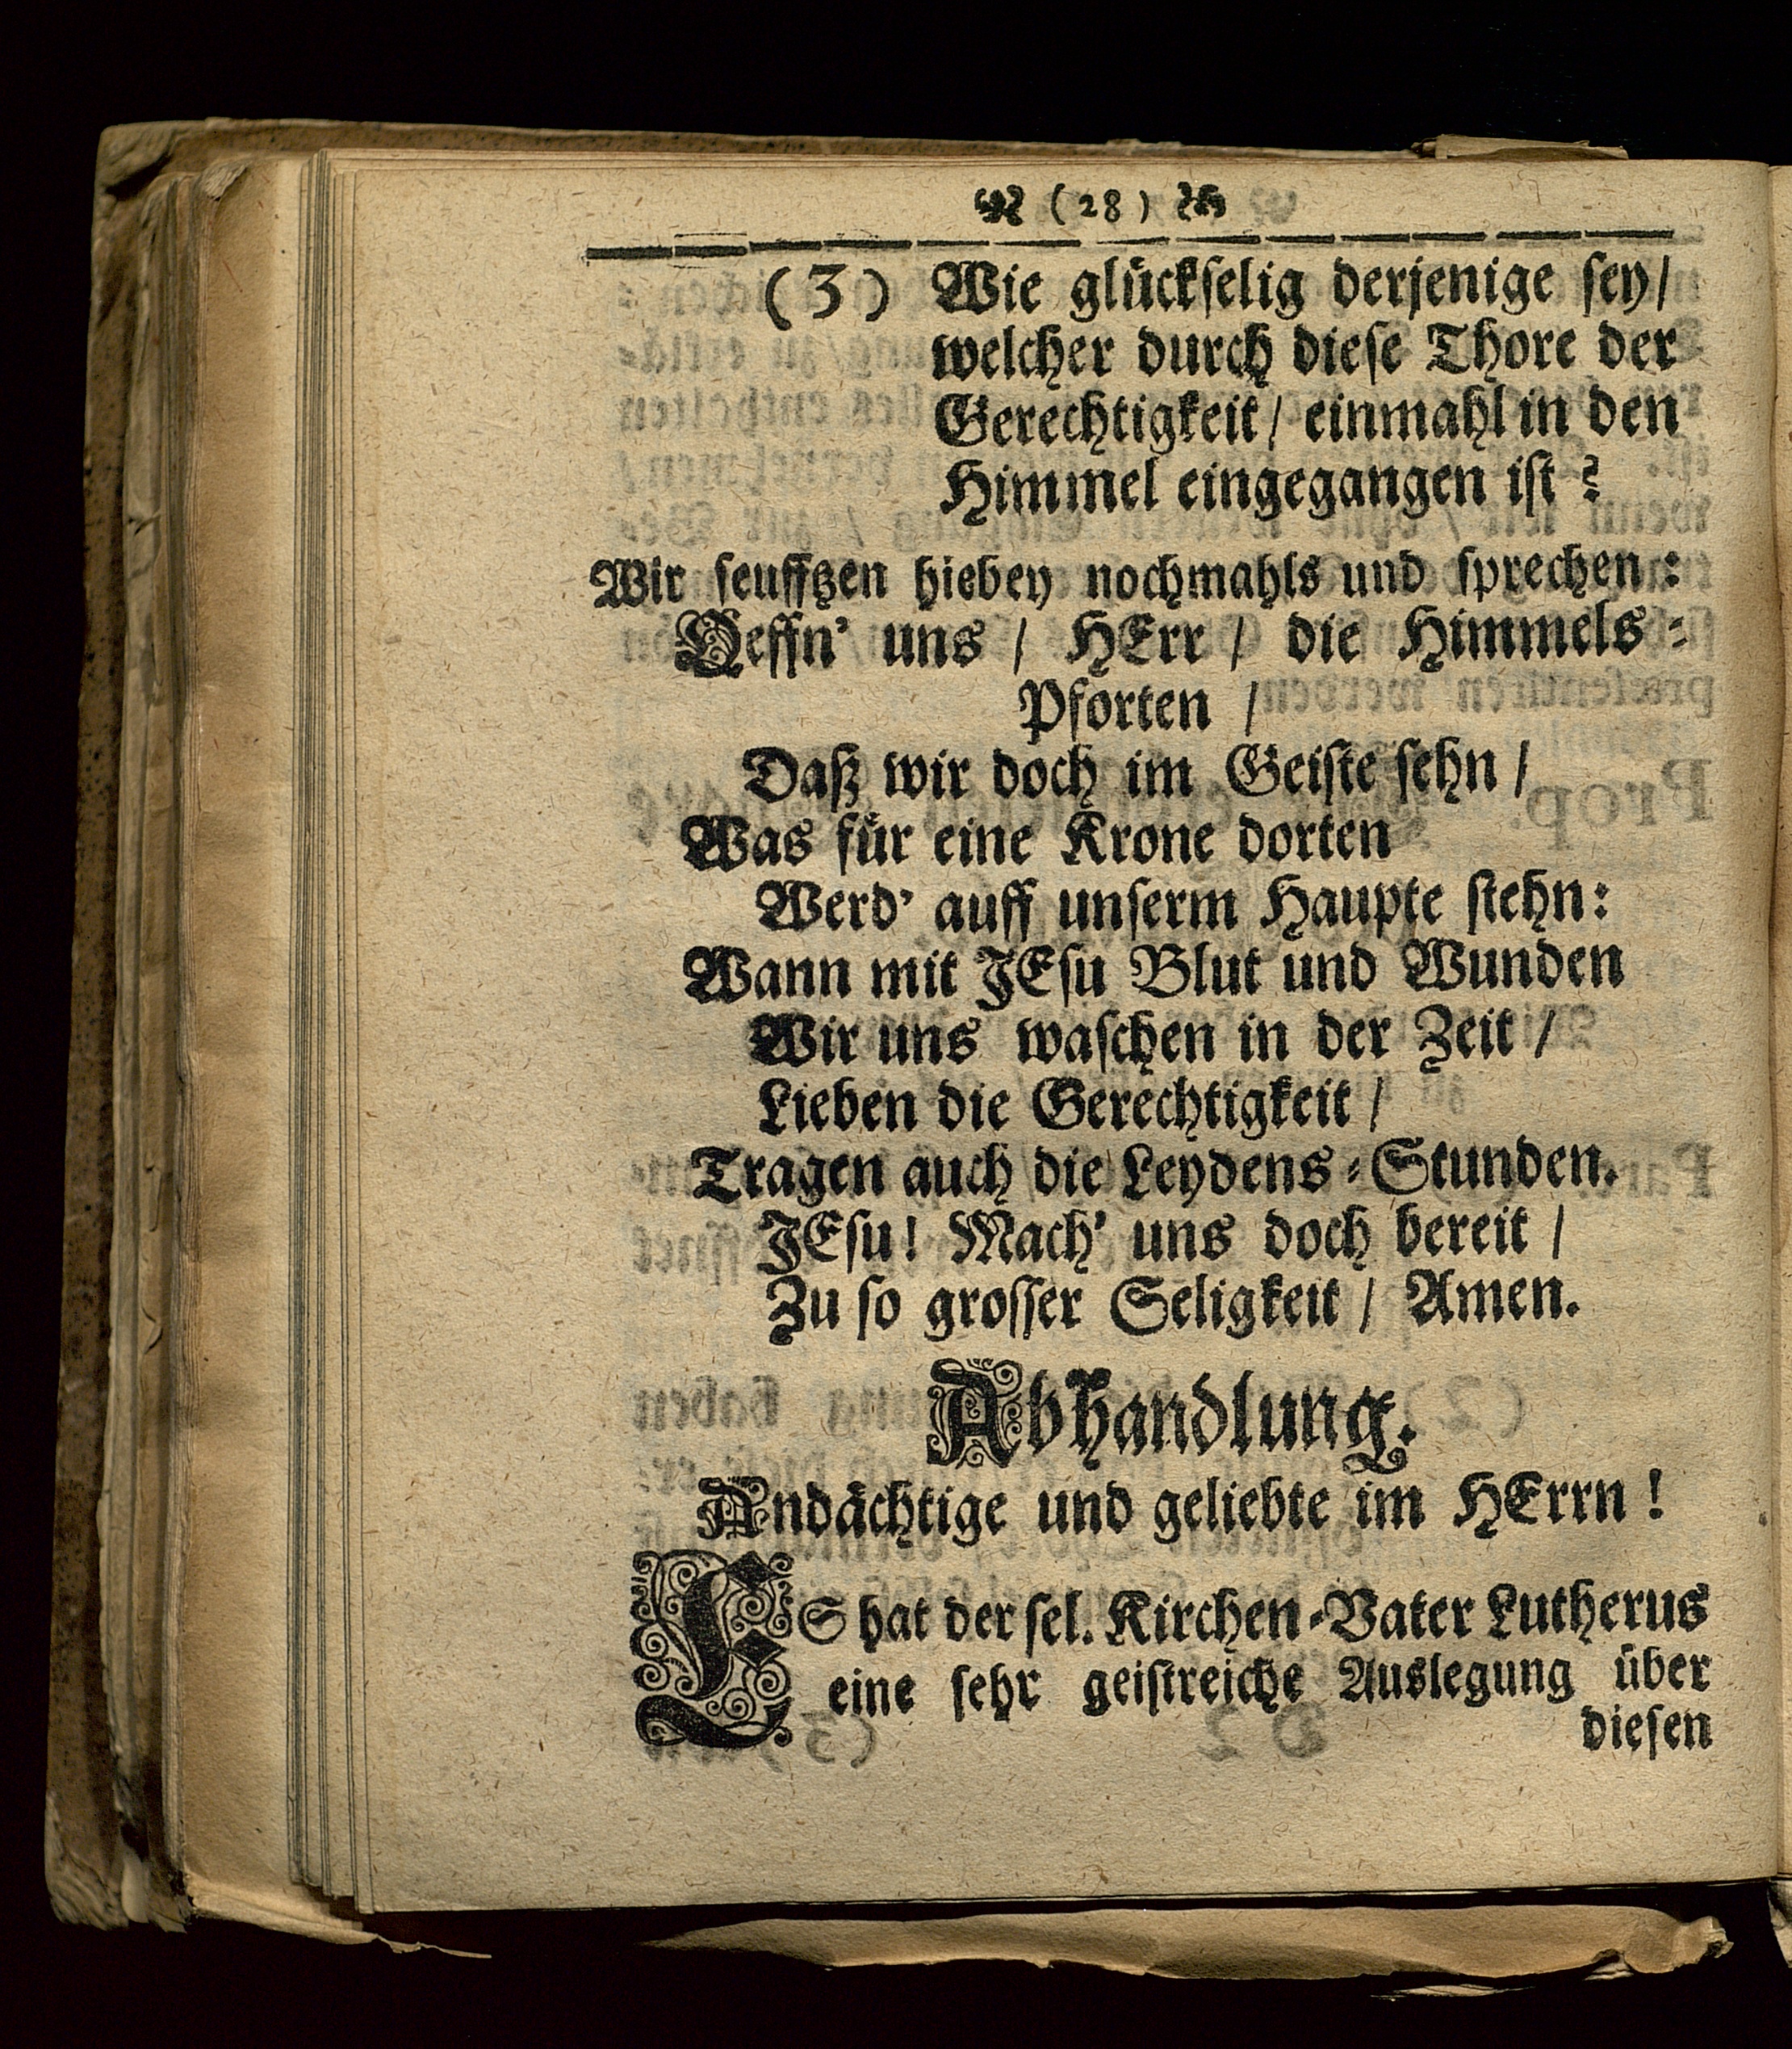 (28)
(3) Wie glückſelig derjenige ſey/
welcher durch dieſe Thore der
Gerechtigkeit/ einmahl in den
Himmel eingegangen iſt?
Wir ſeufftzen hiebey nochmahls und ſprechen:
Oeffn' uns / HErr / die Himmels-
Pforten /
Daß wir doch im Geiſte ſehn /
Was für eine Krone dorten
Werd' auff unſerm Haupte ſtehn:
Wann mit JEſu Blut und Wunden
Wir uns waſchen in der Zeit /
Lieben die Gerechtigkeit /
Tragen auch die Leydens-Stunden.
JEſu! Mach' uns doch bereit /
Zu ſo groſſer Seligkeit / Amen.
Abhandlung.
Andächtige und geliebte im HErrn!
ES hat der ſel. Kirchen-Vater Lutherus
eine ſehr geiſtreiche Auslegung über
dieſen